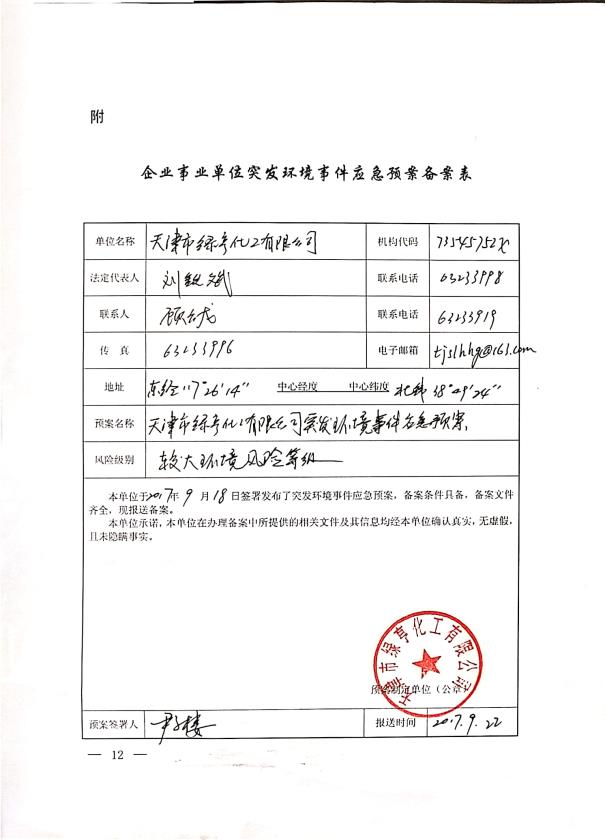 附
企业事业单位突发环境事件应急预案备案表
单位名称 天津市绿亨化工有限公司 机构代码 73545752X
法定代表人 联系电话 63233998
联系人 联系电话 63233919
传真 63233996 电子邮箱 tjslhhg@163.com
地址 东经117°26′14″ 中心经度 中心纬度 北纬38°49′24″
预案名称 天津市绿亨化工有限公司突发环境事件应急预案
风险级别 较大环境风险等级
本单位于2017年9月18日签署发布了突发环境事件应急预案，备案条件具备，备案文件
齐全，现报送备案。
本单位承诺，本单位在办理备案中所提供的相关文件及其信息均经本单位确认真实，无虚假，
且未隐瞒事实。
天津市绿亨化工有限公司
预案制定单位（公章）
预案签署人 报送时间 2017.9.22
— 12 —